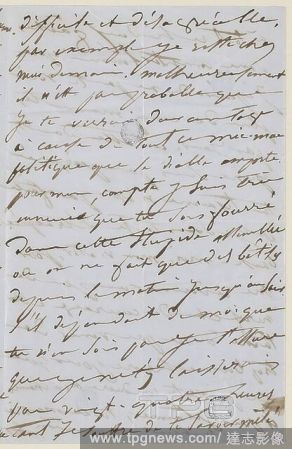 difficile et désagréable,
par exemple je reste chez
moi demain. malheureusement
il n'est pas probable que
je te verrai dans un tout
à cause de tout ce mic-mac
politique que le diable emporte
pour mon compte je suis très
ennuié que tu sois fourré
dans cette stupide assemblée
où on ne fait que des bêtises
depuis le matin jusqu'au soir
s'il dépendait de moi que
tu n'en sois pas je t'assure
que je n'ét laisserais
pas vingt-quatre heures
TPG
www.tpgnews.com/達志影像